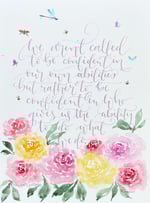 We aren't called
to be confident in
our own abilities
but rather to be
confident in Who
gives us the ability
to do what
we do